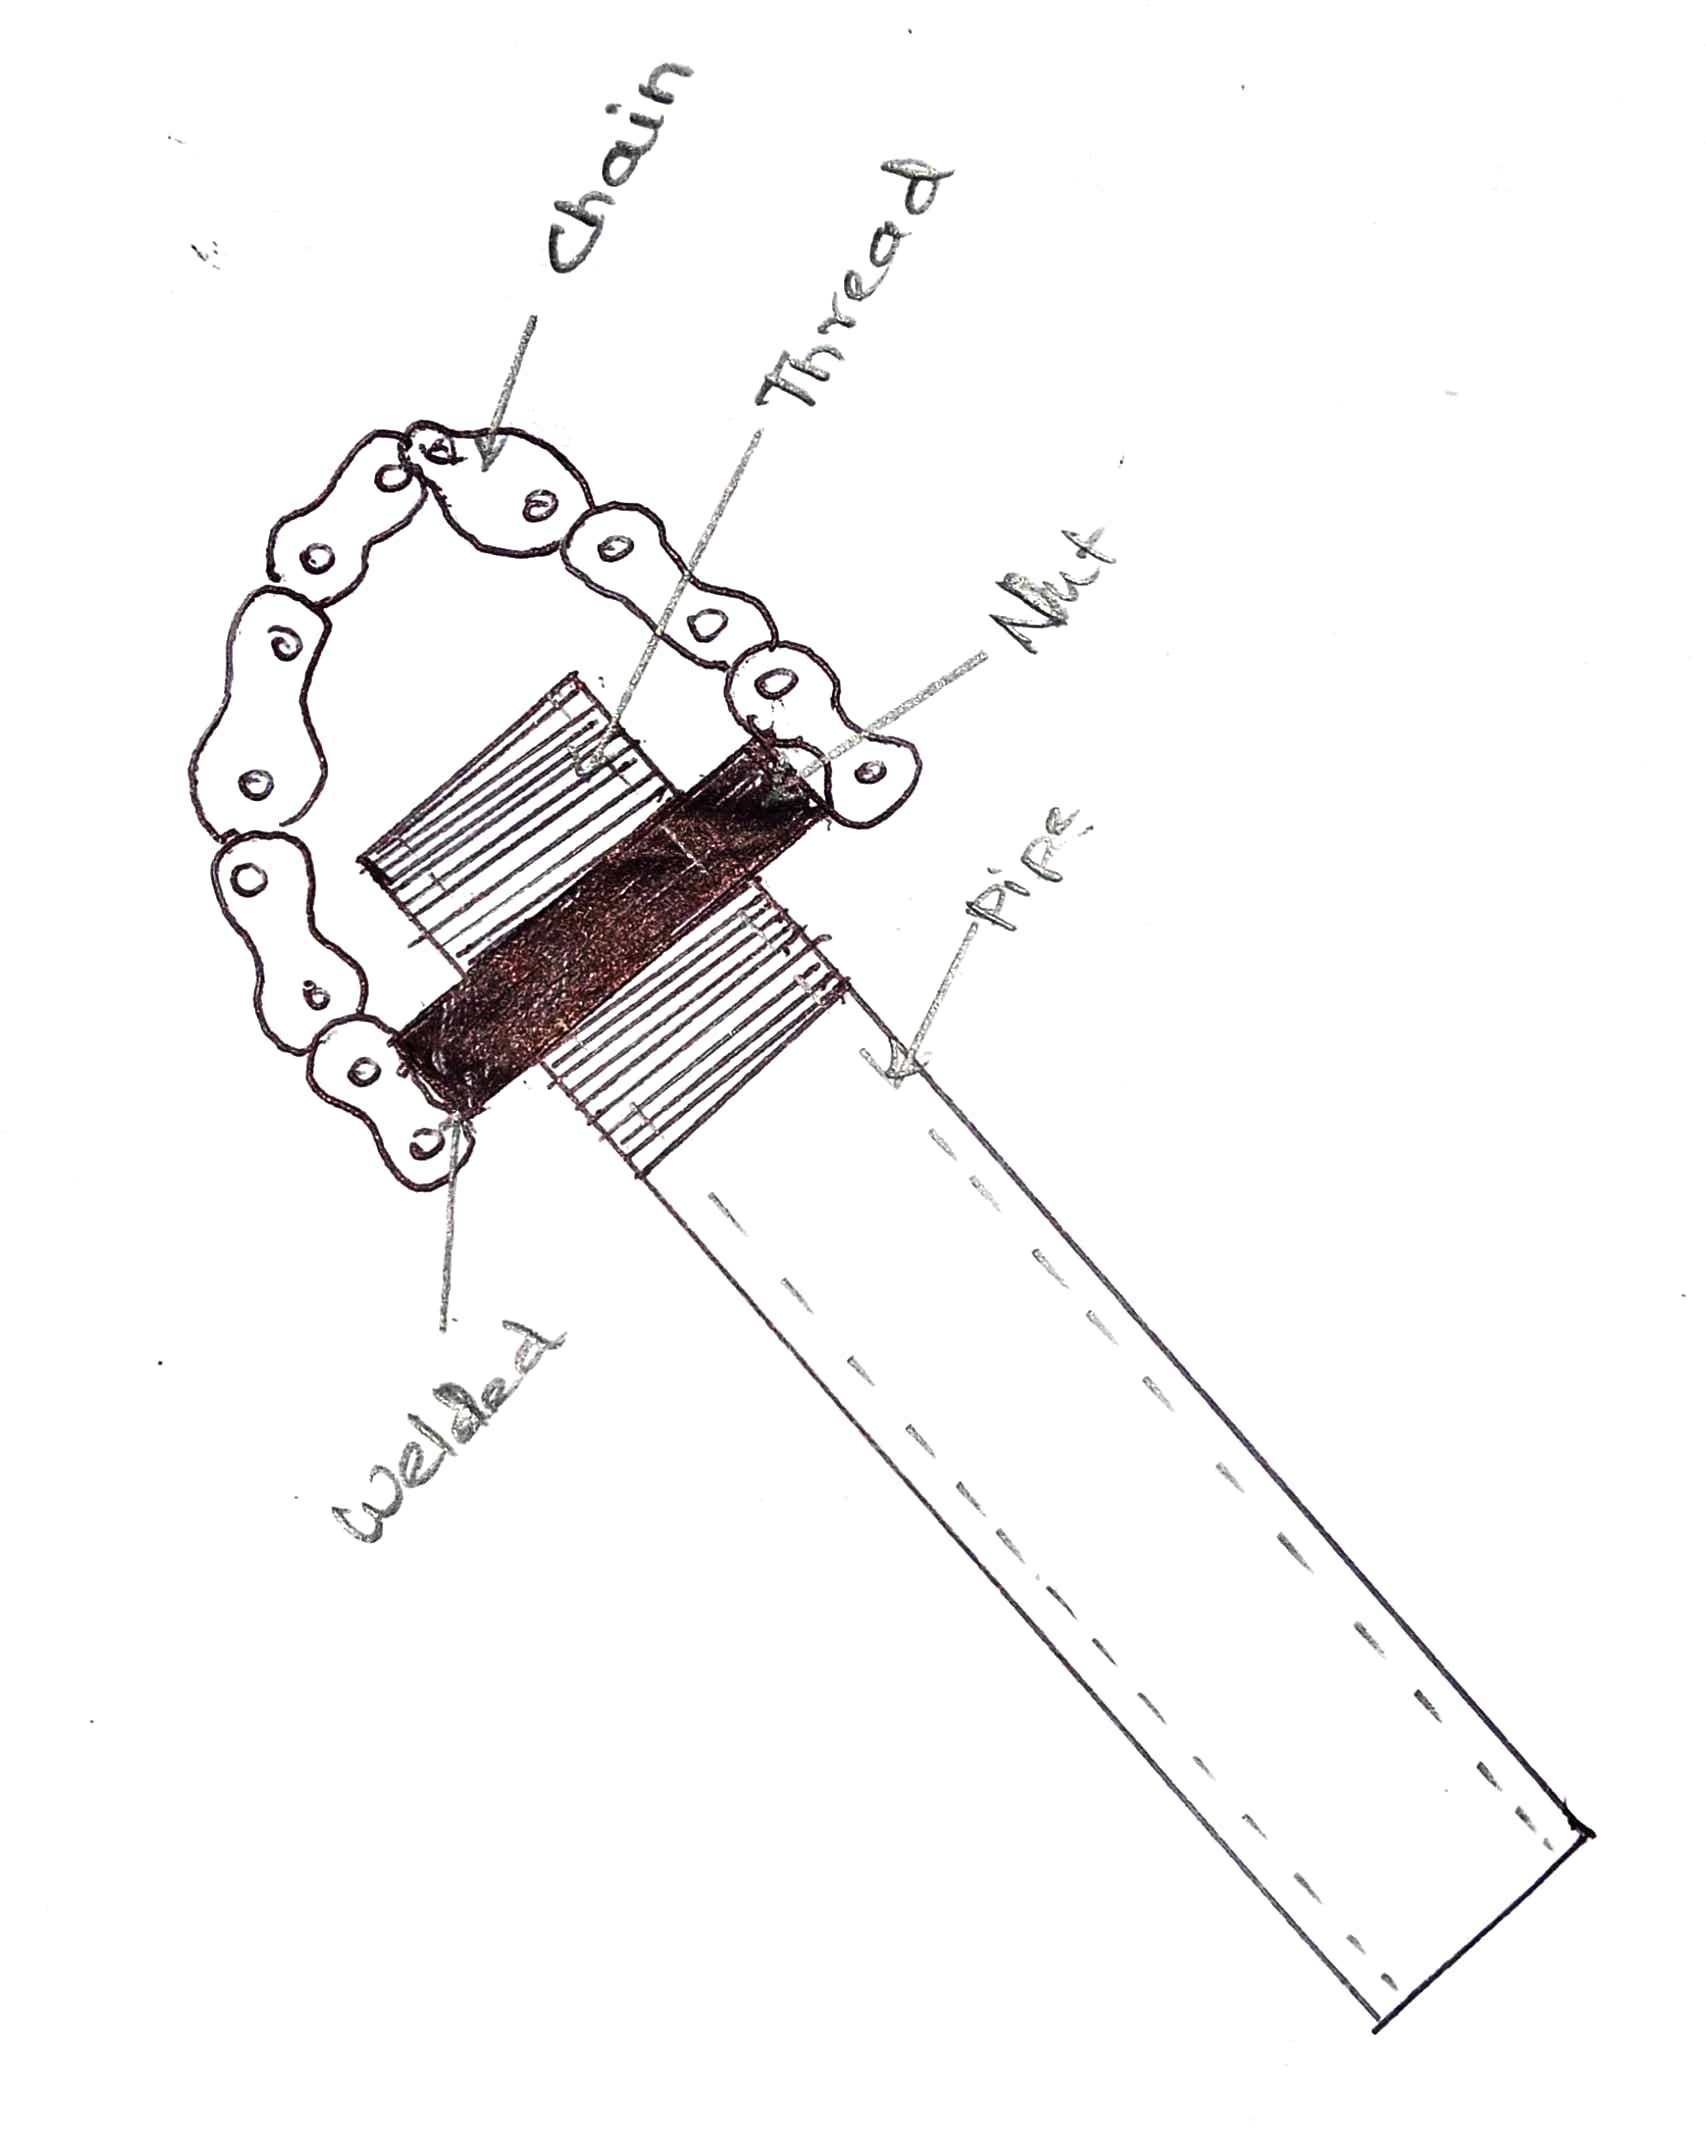 Chain
Thread
Nut
Pipe
Welded